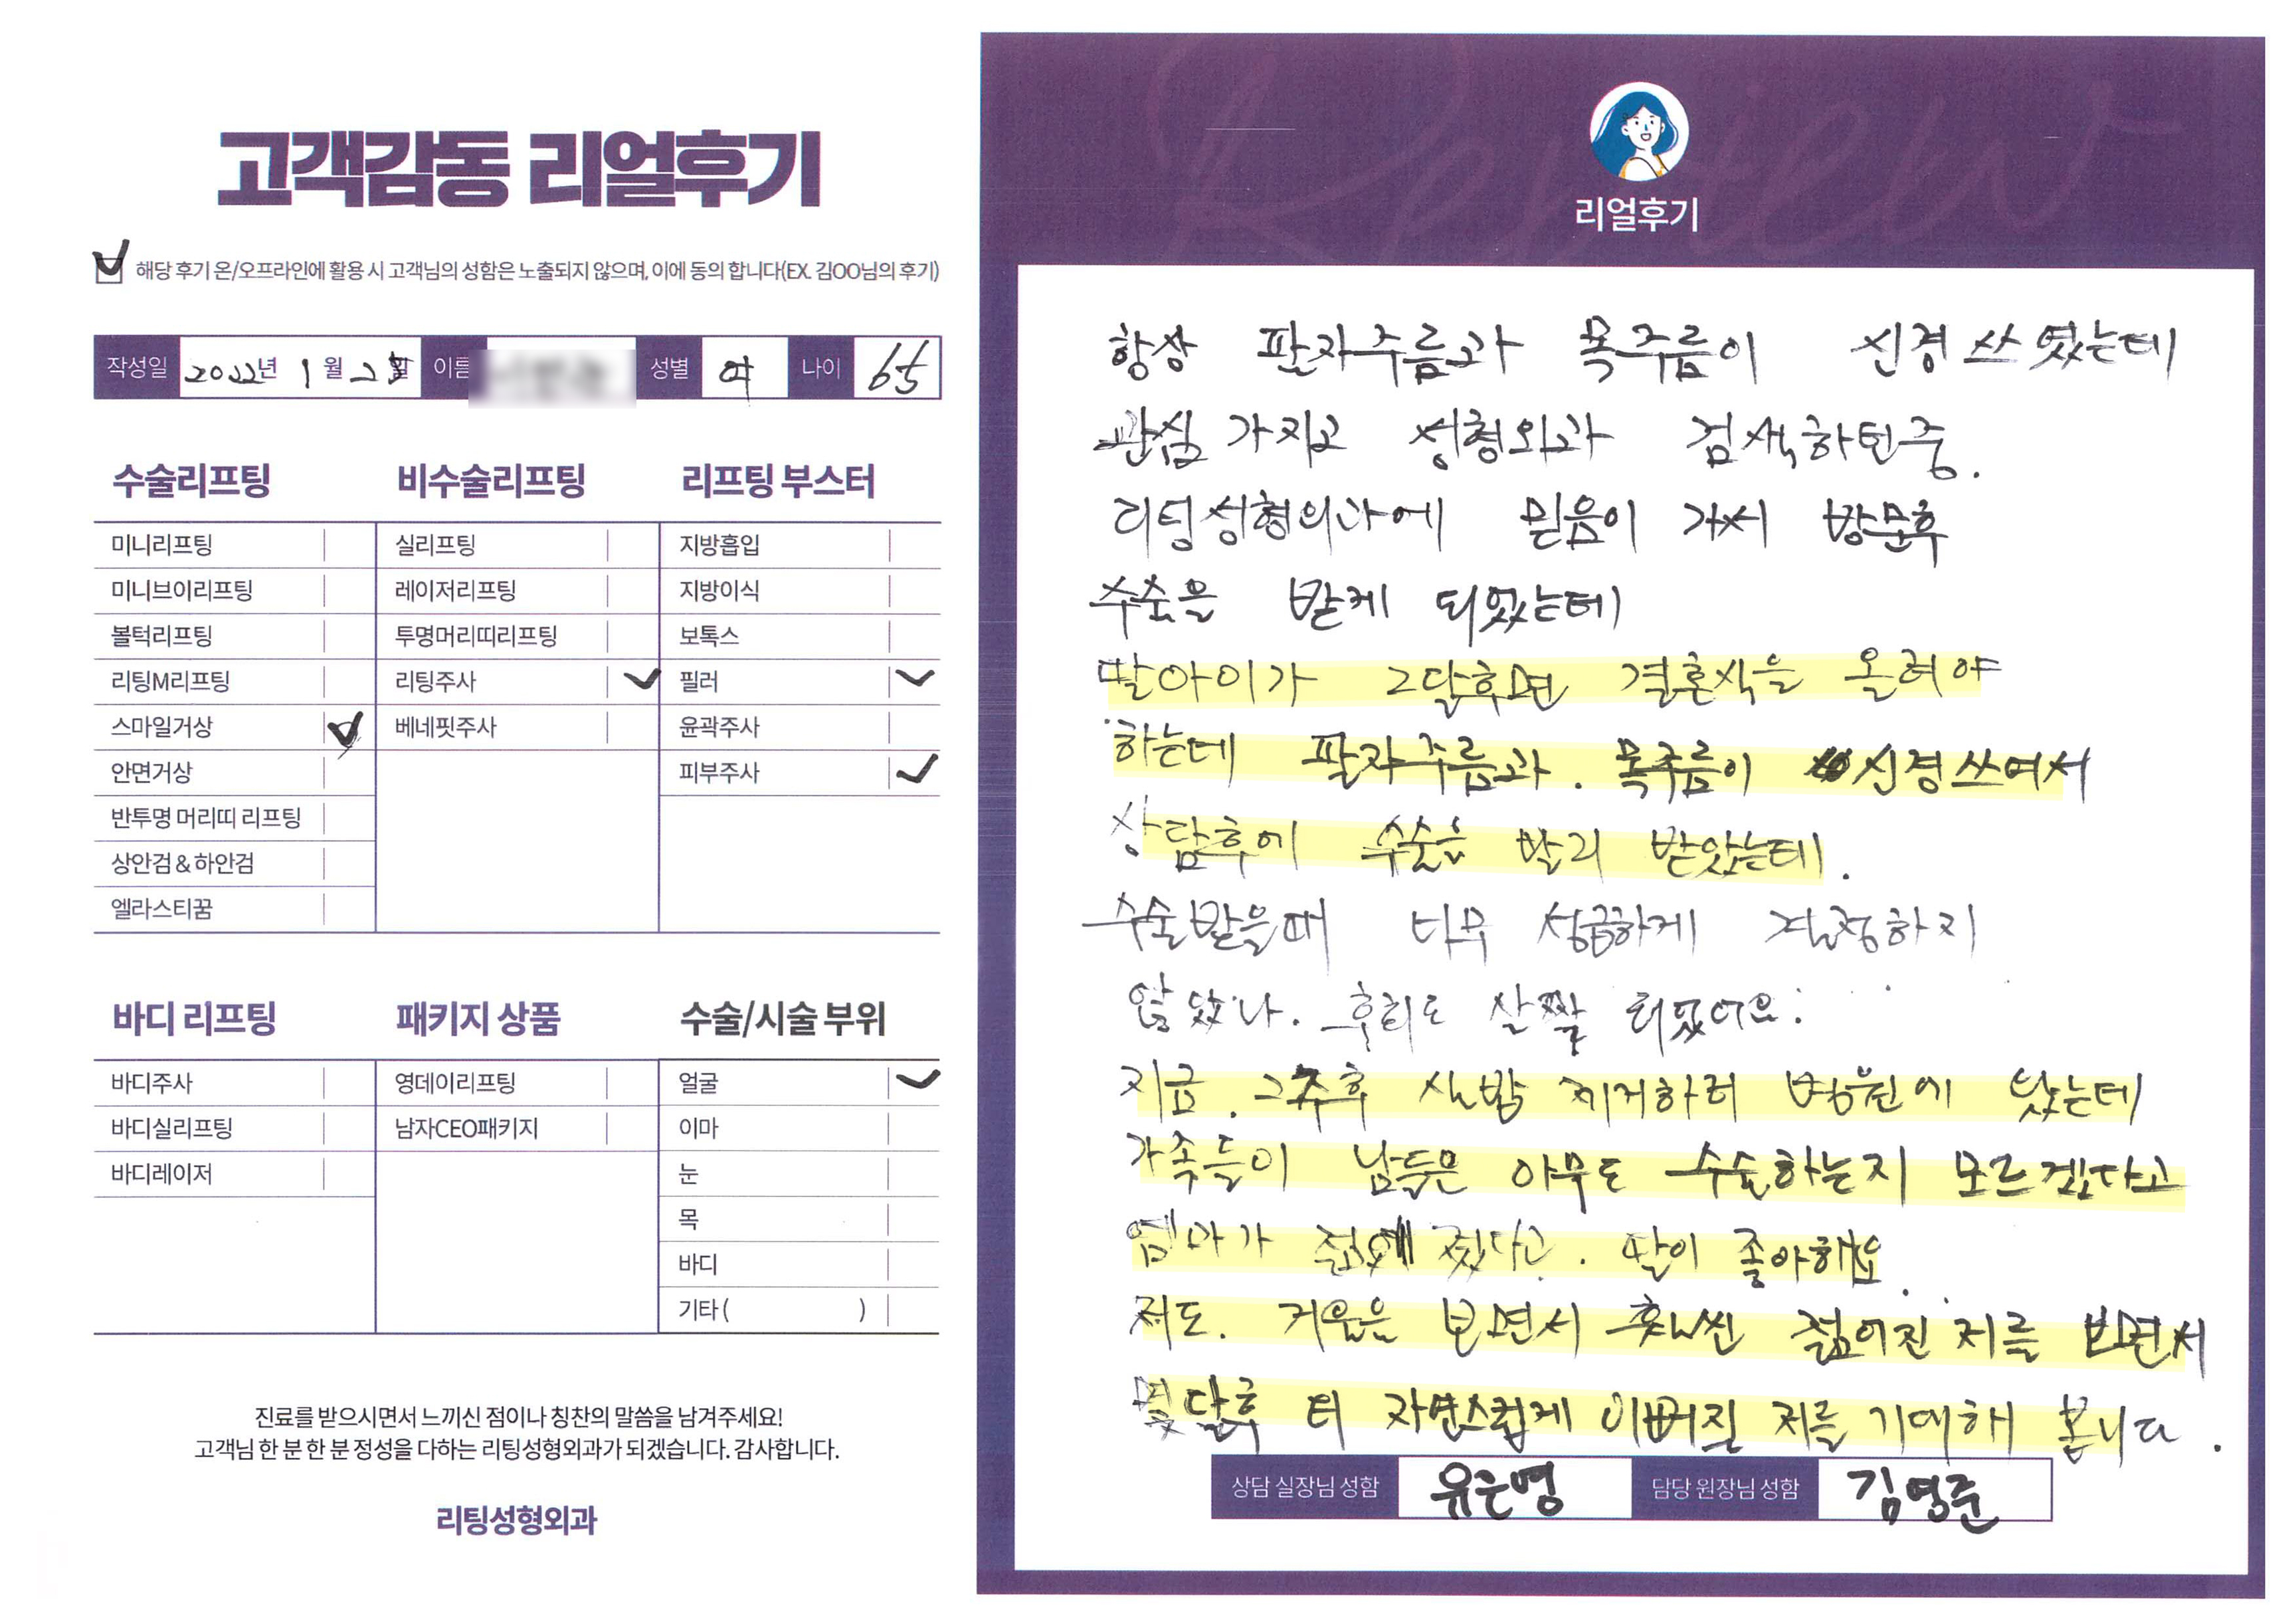 고객감동 리얼후기
해당 후기 온/오프라인에 활용 시 고객님의 성함은 노출되지 않으며, 이에 동의 합니다(EX. 김OO님의 후기)
작성일 2022년 1월 25일 이름 성별 여 나이 65
수술리프팅
미니리프팅
미니브이리프팅
볼턱리프팅
리팅M리프팅
스마일거상
안면거상
반투명 머리띠 리프팅
상안검 & 하안검
엘라스티꿈
비수술리프팅
실리프팅
레이저리프팅
투명머리띠리프팅
리팅주사
베네핏주사
리프팅 부스터
지방흡입
지방이식
보톡스
필러
윤곽주사
피부주사
바디 리프팅
바디주사
바디실리프팅
바디레이저
패키지 상품
영데이리프팅
남자CEO패키지
수술/시술 부위
얼굴
이마
눈
목
바디
기타 ( )
진료를 받으시면서 느끼신 점이나 칭찬의 말씀을 남겨주세요!
고객님 한 분 한 분 정성을 다하는 리팅성형외과가 되겠습니다. 감사합니다.
리팅성형외과
Review
리얼후기
항상 팔자주름과 목주름이 신경 쓰였는데
관심 가지고 성형외과 검색하던중.
리팅성형외과에 믿음이 가서 방문후
수술을 받게 되었는데
딸아이가 2달후면 결혼식을 올려야
하는데 팔자주름과. 목주름이 신경쓰여서
상담후에 수술을 빨리 받았는데.
수술받을때 너무 성급하게 결정하지
않았나. 후회도 살짝 되었어요.
지금. 2주후 실밥 제거하러 병원에 왔는데
가족들이 남들은 아무도 수술하는지 모르겠다고
엄마가 젊에 졌다고. 딸이 좋아해요.
저도. 거울을 보면서 훨씬 젊어진 저를 보면서
몇달후 더 자연스럽게 이뻐질 저를 기대해 봅니다.
상담 실장님 성함 유은영 담당 원장님 성함 김영준